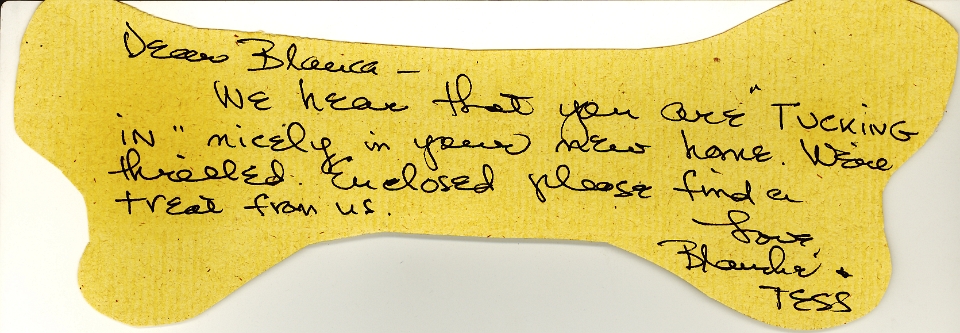 Dear Blanca —
We hear that you are "TUCKING
IN" nicely in your new home. We're
thrilled. Enclosed please find a
treat from us.
Love,
Blanche +
TESS